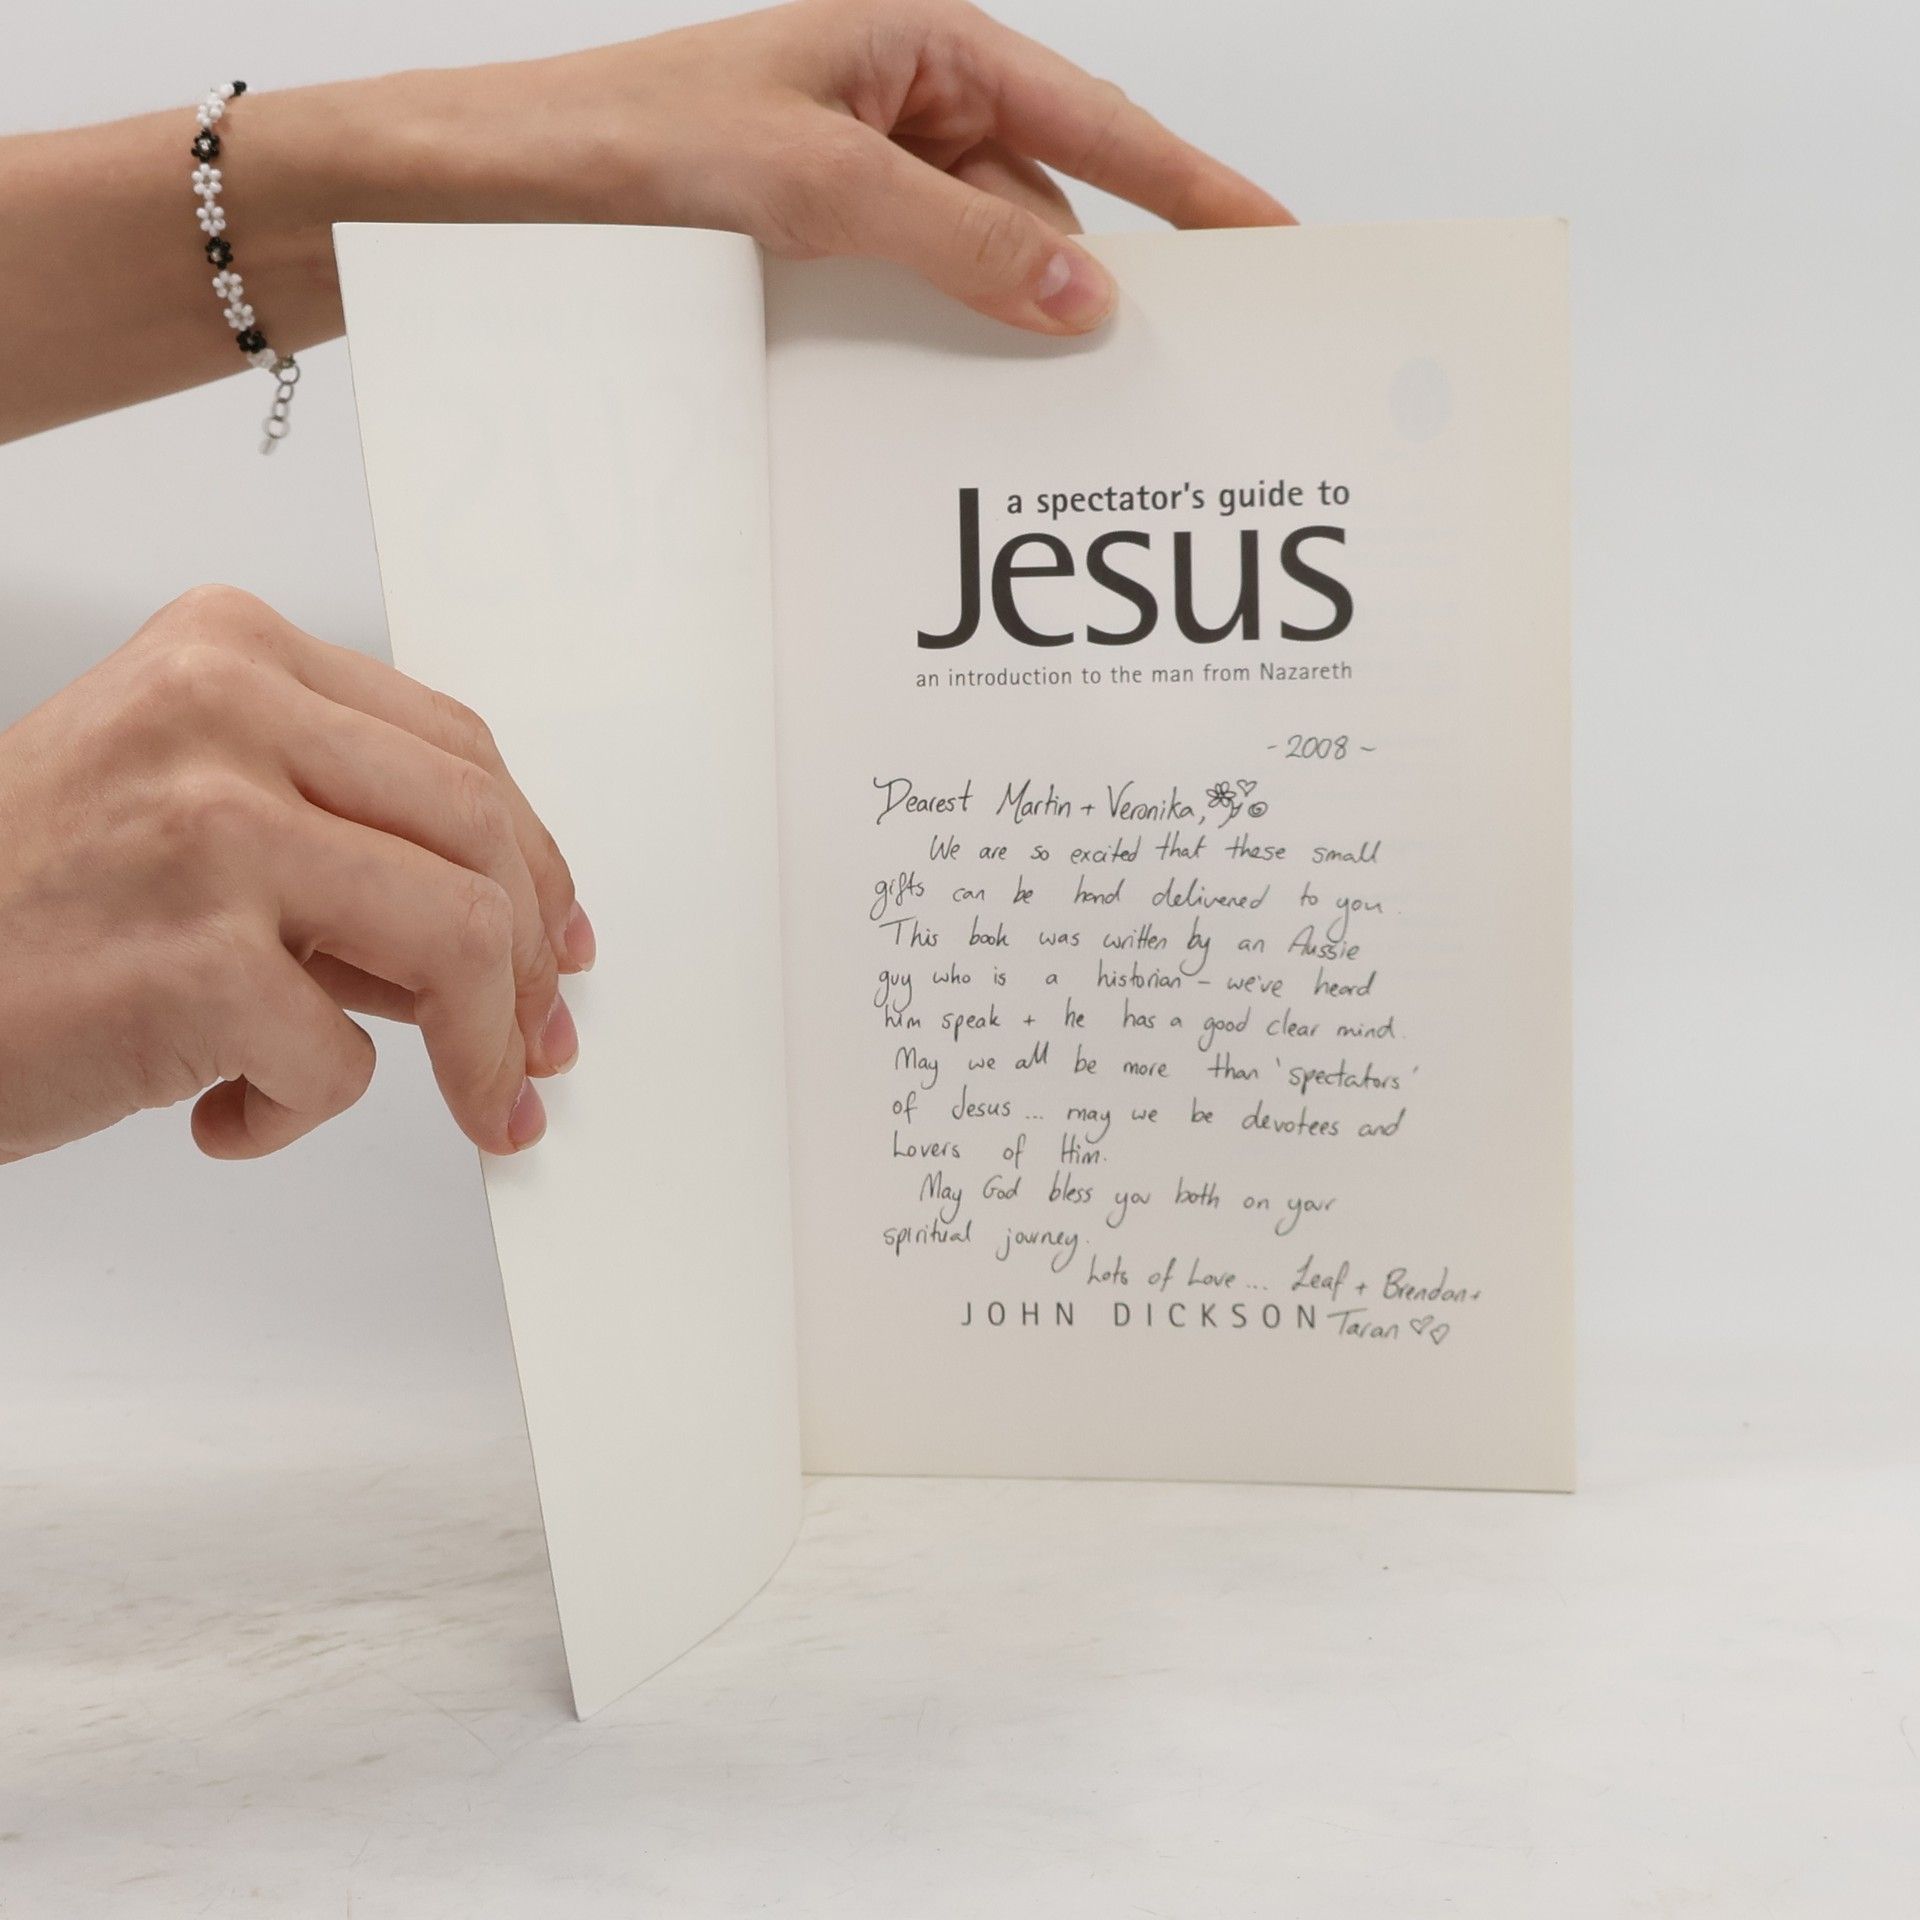 a spectator's guide to
Jesus
an introduction to the man from Nazareth
- 2008 ~
Dearest Martin + Veronika,
We are so excited that these small
gifts can be hand delivered to you.
This book was written by an Aussie
guy who is a historian – we've heard
him speak + he has a good clear mind.
May we all be more than 'spectators'
of Jesus ... may we be devotees and
Lovers of Him.
May God bless you both on your
spiritual journey.
Lots of Love ... Leaf + Brendan +
JOHN DICKSON Taran